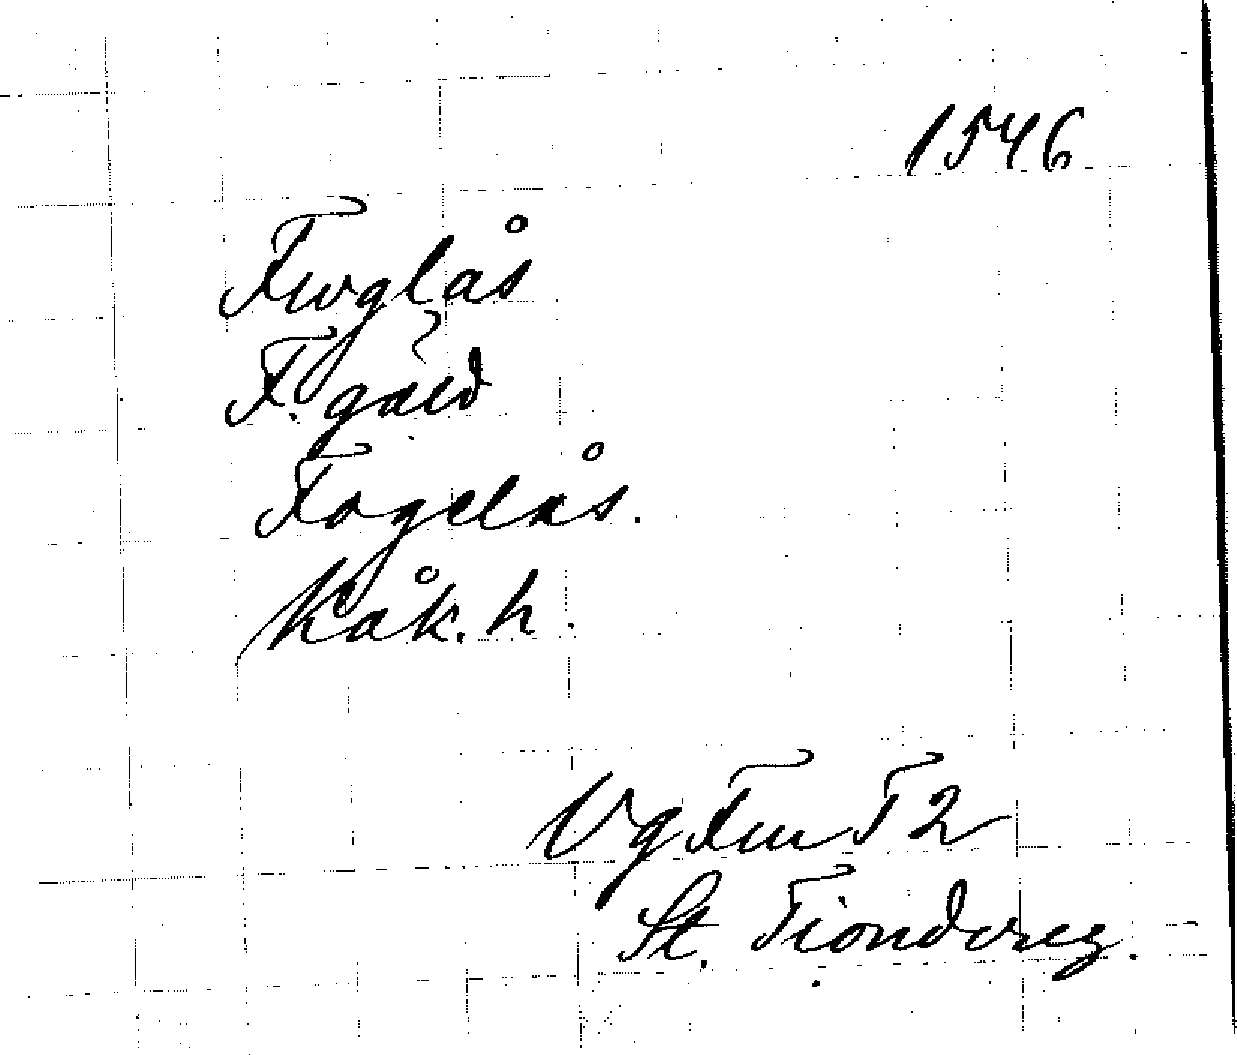 1546
Fwglås
F. gäld
Fogelås.
Kåk. h.
Vg Fur T 2
St. Tiondereg.